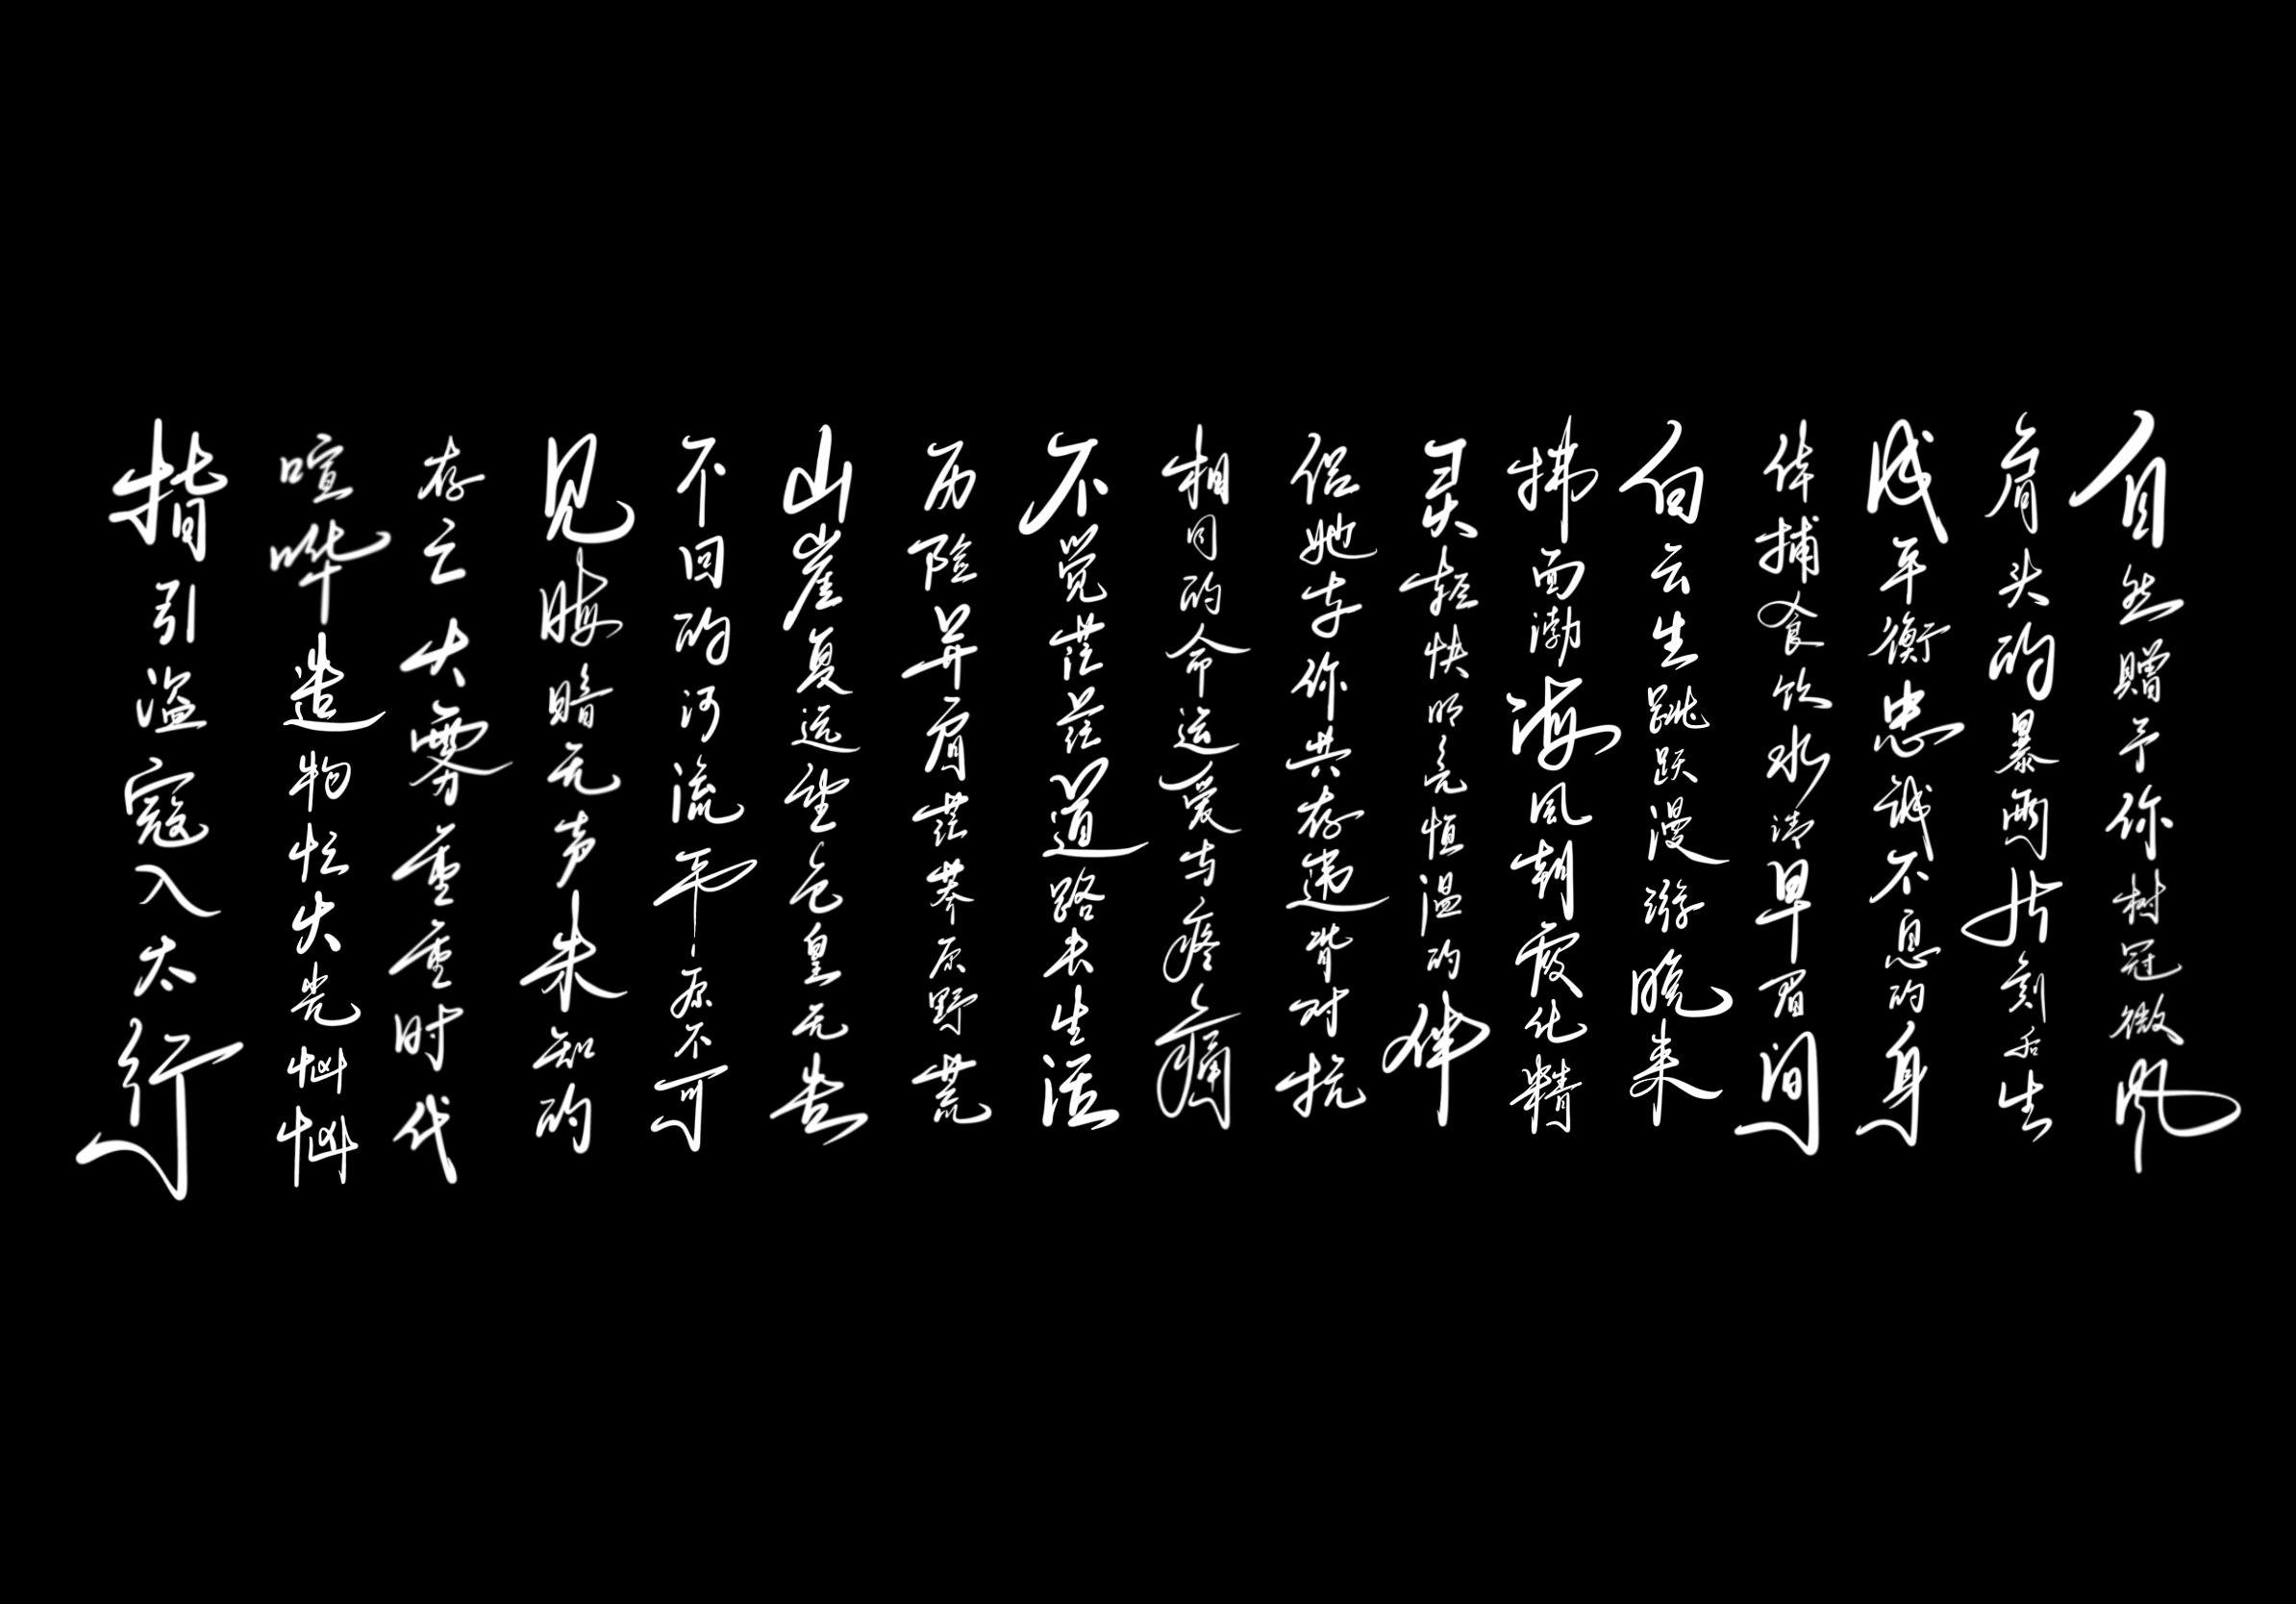 自然赠予你树冠微风
肩头的暴雨片刻后生
成平衡忠诚不息的身
体捕食饮水清早眉间
白云生跳跃漫游晚来
拂面渤海风朝霞化精
灵轻快明亮恒温的伴
侣她与你共存违背对抗
相同的命运爱与疼痛
不觉茫茫道路长生活
历险并肩茫莽原野荒
山崖复远望仓皇无告
不回的河流平原不可
见晦暗无声未知的
存亡大雾重重时代
喧哗造物忙火光忷忷
指引盗寇入太行